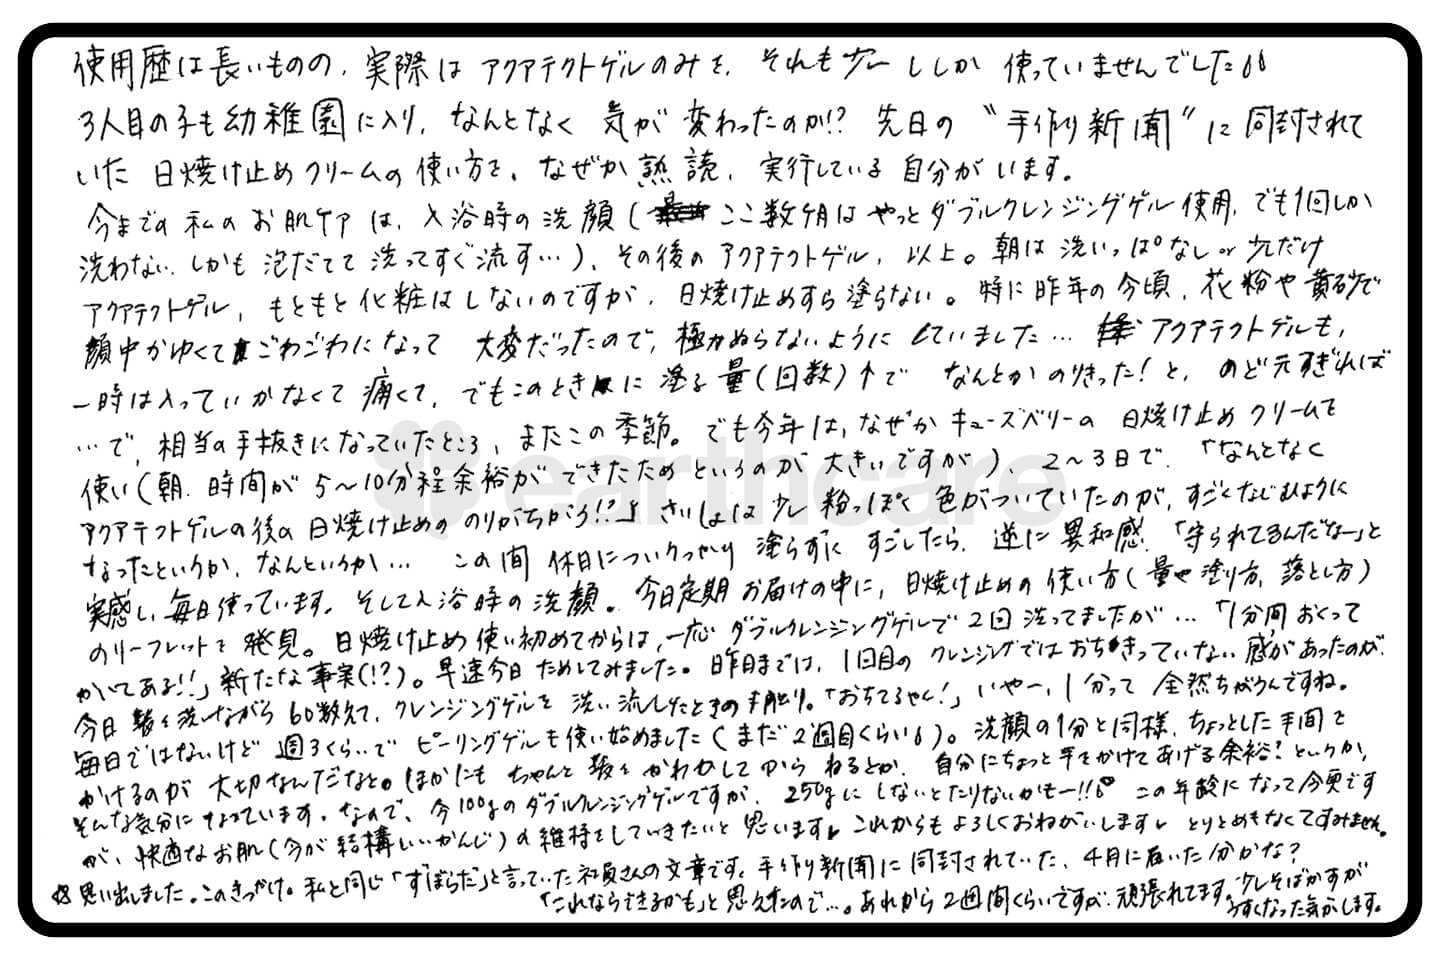 使用歴は長いものの、実際は アクアテクトゲルのみを、それも少ーししか 使っていませんでした
3人目の子も幼稚園に入り、なんとなく 気が 変わったのか!? 先日の "手作り新聞" に 同封されて
いた 日焼け止めクリームの使い方を、なぜか熟読、実行している 自分がいます。
今までの 私の お肌ケア は、入浴時の洗顔(ここ数ヶ月は やっとダブルクレンジングゲル使用、でも1回しか
洗わない、しかも 泡だてて 洗ってすぐ流す…)、その後の アクアテクトゲル、以上。朝は 洗いっぱなし or 少しだけ
アクアテクトゲル、もともと化粧はしないのですが、日焼け止めすら塗らない。特に昨年の今頃、花粉や黄砂で
顔中かゆくて ごわごわになって 大変だったので、極力ぬらないように していました… アクアテクトゲルも、
一時は入っていかなくて 痛くて、でもこのとき に 塗る 量(回数)↑で なんとか のりきった!と、のど元すぎれば
…で、相当の手抜きになっていたところ、またこの季節。でも今年は、なぜか キューズベリーの 日焼け止めクリームを
使い(朝、時間が 5〜10分程余裕が できたため というのが 大きいですが)、2〜3日で、「なんとなく
アクアテクトゲルの後の 日焼け止めの のりがちがう!?」さいしょは少し 粉っぽく 色がついていたのが、すごくなじむように
なったというか、なんというか… この間 休日についうっかり 塗らずに すごしたら、逆に 異和感、「守られてるんだなー」と
実感し、毎日使っています。そして入浴時の洗顔。今日定期お届けの中に、日焼け止めの 使い方(量や塗り方、落とし方)
のリーフレットを 発見。日焼け止め使い初めてからは、一応 ダブルクレンジングゲルで 2回 洗ってましたが…「1分間おくって
かいてある!!」新たな事実(!?)。早速今日 ためしてみました。昨日までは、1回目の クレンジングではおちきっていない 感があったのが、
今日 顔を洗いながら 60数えて、クレンジングゲルを 洗い流したときの手触り。「おちてるやん!」いやー、1分って 全然ちがうんですね。
毎日ではないけど 週3くらいで ピーリングゲルも使い始めました(まだ2週目くらい)。洗顔の1分と同様、ちょっとした手間を
かけるのが 大切なんだなと。ほかにも ちゃんと 髪を かわかしてから ねるとか、自分にちょっと手をかけてあげる余裕?というか、
そんな気分に なっています。なので、今100gのダブルクレンジングゲルですが、250gに しないとたりないかもー!! この年齢になって今更です
が、快適なお肌(今が結構いいかんじ)の維持をしていきたいと 思います。これからも よろしくおねがいします。とりとめもなくてすみません。
※思い出しました。このきっかけ。私と同じ「ずぼらだ」と言っていた社員さんの文章です。手作り新聞に同封されていた、4月に届いた分かな?
「これならできるかも」と思えたので…。あれから2週間くらいですが、頑張れてます。少しそばかすが
うすくなった気がします。
earthcare